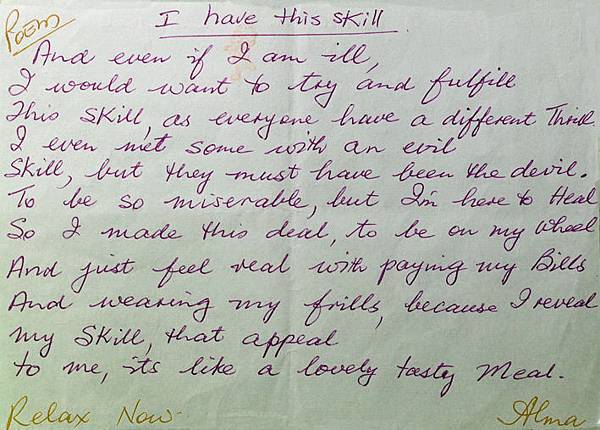 Poem
I have this skill
And even if I am ill,
I would want to try and fulfill
This skill, as everyone have a different Thrill.
I even met some with an evil
Skill, but they must have been the devil.
To be so miserable, but I'm here to Heal
So I made this deal, to be on my wheel
And just feel real with paying my Bills
And wearing my frills, because I reveal
my Skill, that appeal
to me, its like a lovely tasty Meal.
Relax Now.
Alma